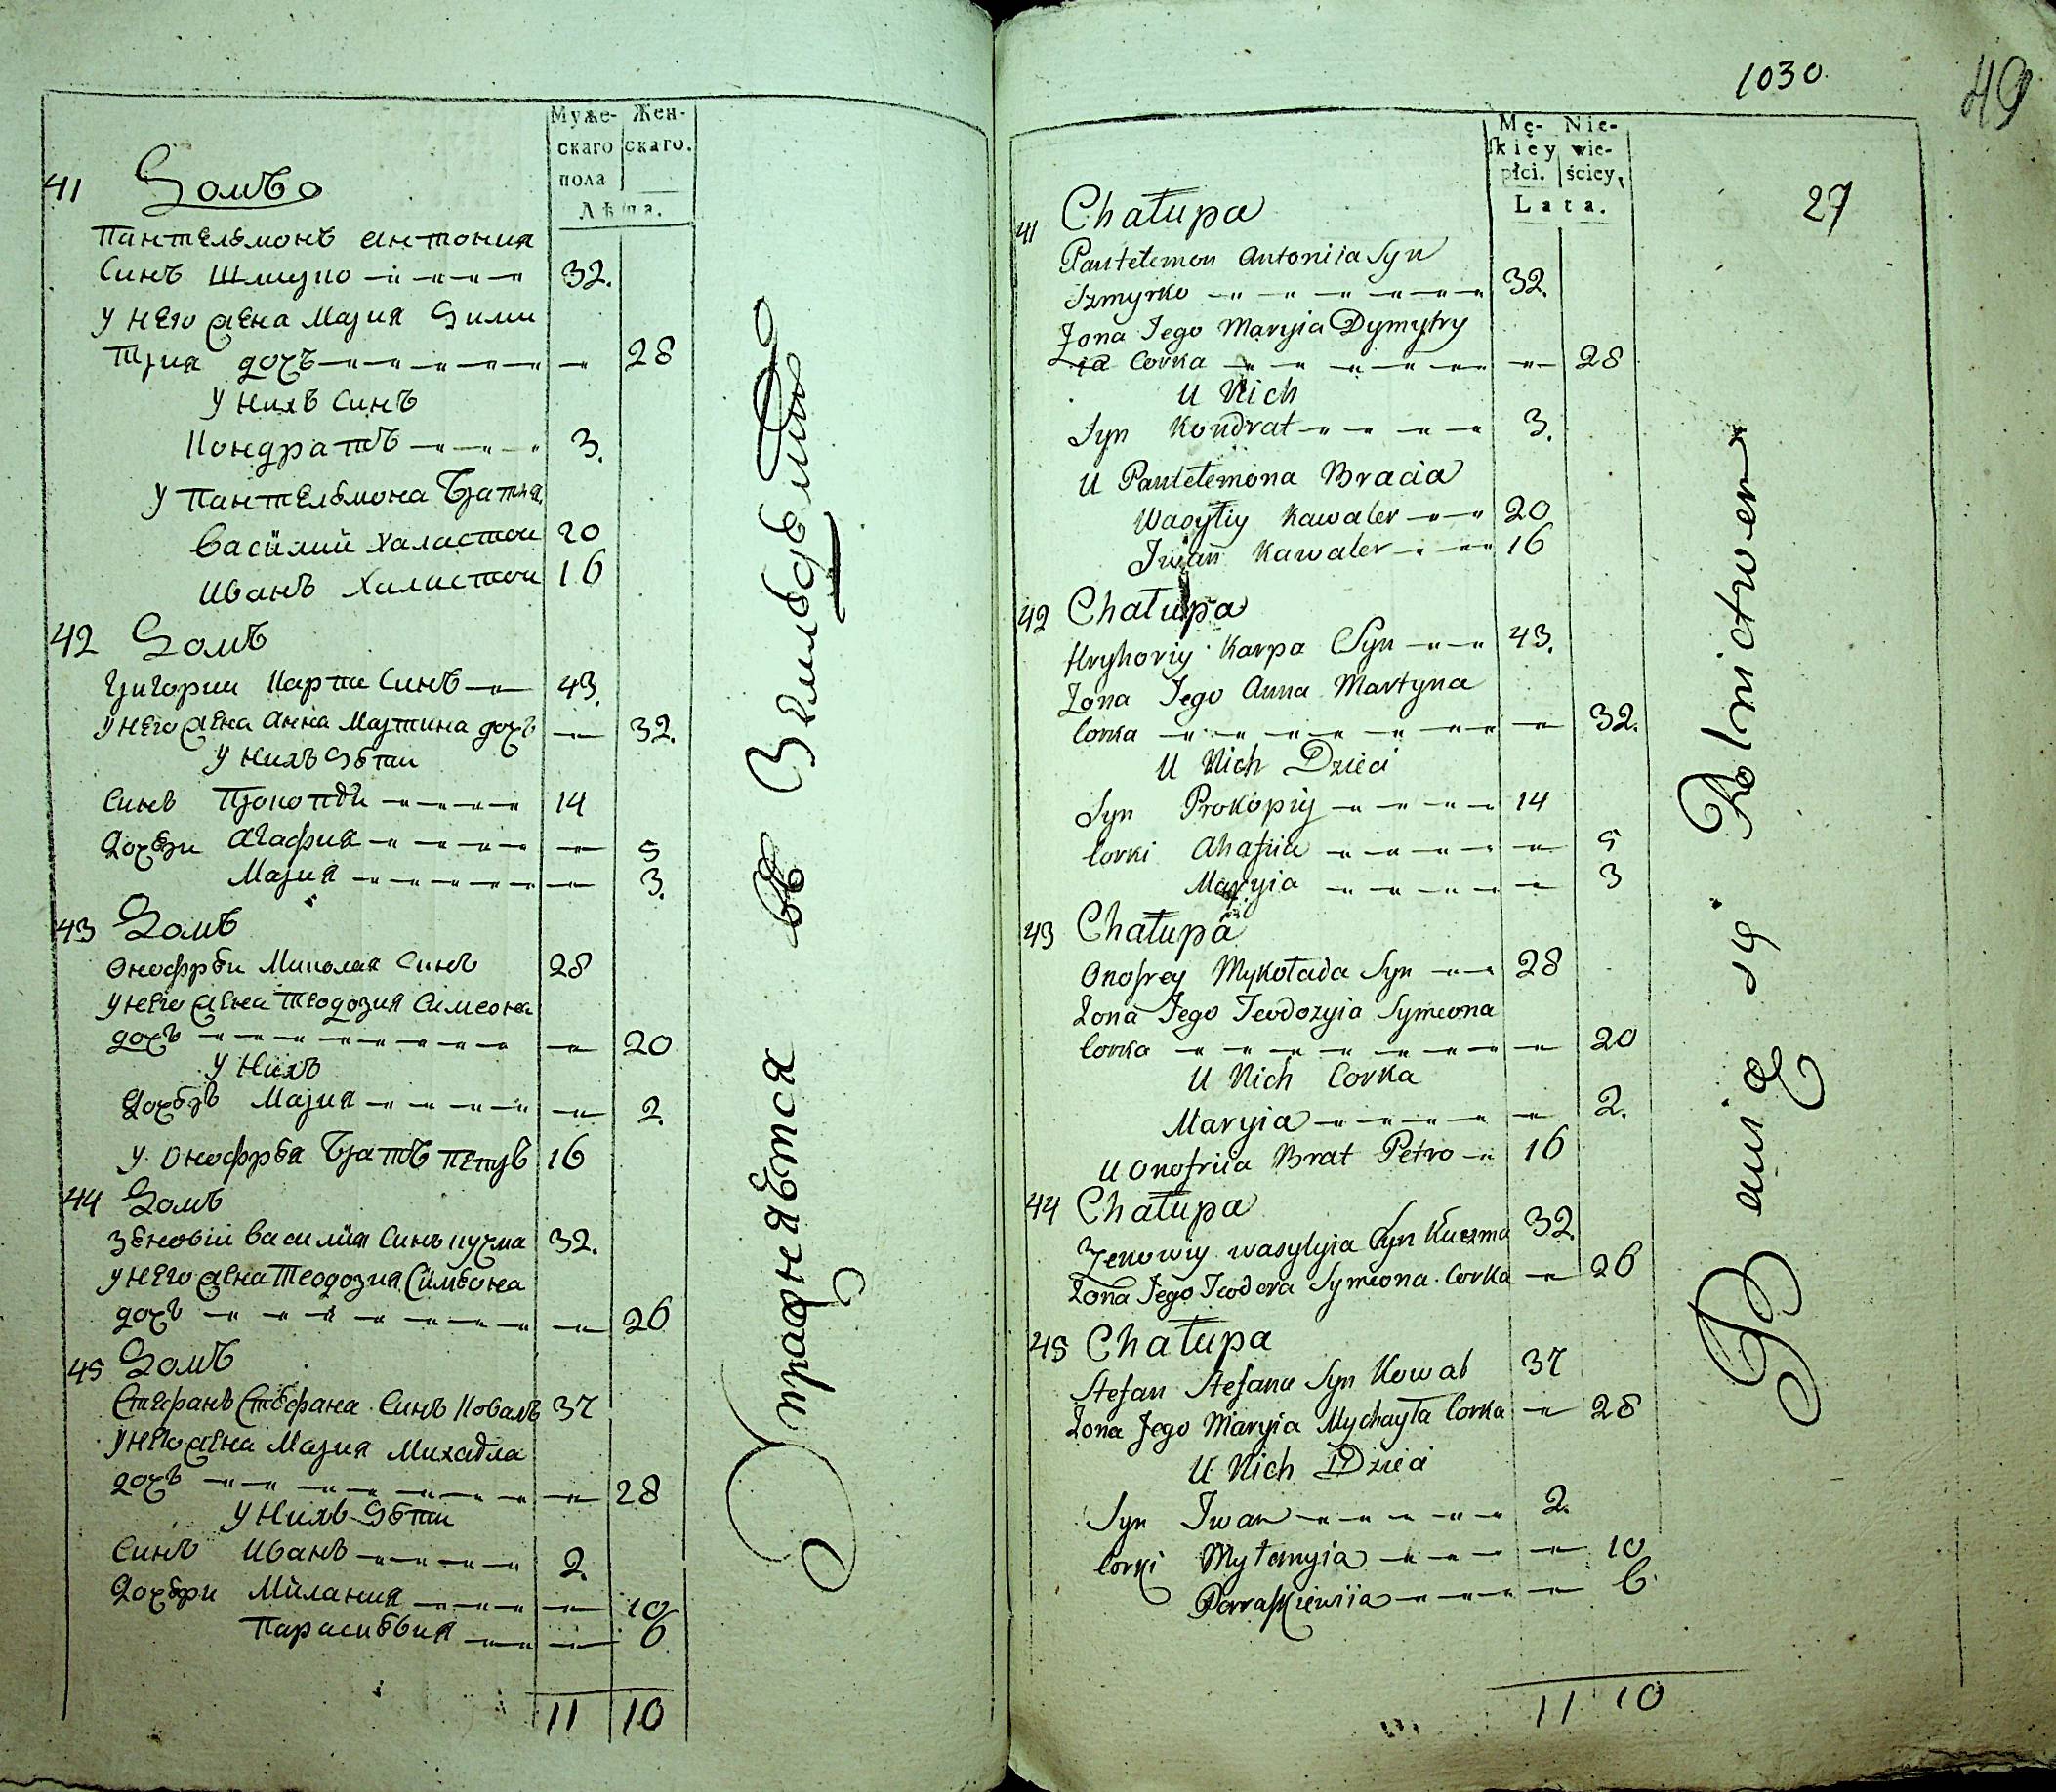 Муже- Жен-
скаго скаго.
пола
Лѣта.
41 Домъ
Пантелемонъ Антония
Синъ Шмирко 32.
у него жена Мария Дими
трия дочъ 28
у нихъ Синъ
Кондратъ 3.
у Пантелемона братия
Василий Халастои 20
Иванъ Халастои 16
42 Домъ
Григории Карпа Синъ 43.
у него жена Анна Мартина дочъ 32.
у нихъ Дѣти
Синъ Прокопѣи 14
Дочери Агафия 5
Мария 3.
43 Домъ
Онофрѣи Миколая Синъ 28
у него жена Теодозия Симеона
дочъ 20
у нихъ
Дочеръ Мария 2.
у Онофрѣя братъ Петръ 16
44 Домъ
Зѣновіи Василия Синъ Кузма 32.
у него жена Теодозия Симѣона
дочъ 26
45 Домъ
Стефанъ Стефана Синъ Коваль 37
у него жена Мария Михаѣла
дочъ 28
у нихъ Дѣти
Синъ Иванъ 2.
Дочери Милания 10
Параскѣвия 6
11 10
Упражняѣтся въ Земледелии
1030
49
27
Mę- Nie-
skiey wie-
płci. ściey,
Lata.
41 Chałupa
Pantełemon Antoniia Syn
Szmyrko 32.
Zona Jego Maryia Dymytry
ia Corka 28
U Nich
Syn Kondrat 3.
U Pantełemona Bracia
Wasyliy Kawaler 20
Iwan Kawaler 16
42 Chałupa
Hryhoriy Karpa Syn 43.
Zona Jego Anna Martyna
Corka 32.
U Nich Dzieci
Syn Prokopiy 14
Corki Ahafiia 5
Maryia 3
43 Chałupa
Onofrey Mykołada Syn 28
Zona Jego Teodozyia Symeona
Corka 20
U Nich Corka
Maryia 2.
U Onofriia Brat Petro 16
44 Chałupa
Zenowiy Wasylyia Syn Kuzma 32.
Zona Jego Teodora Symeona Corka 26
45 Chałupa
Stefan Stefana Syn Kowal 37
Zona Jego Maryia Mychayła Corka 28
U Nich Dzieci
Syn Iwan 2.
Corki Myłanyia 10
Paraskiewiia 6.
11 10
Bawią się Rolnictwem